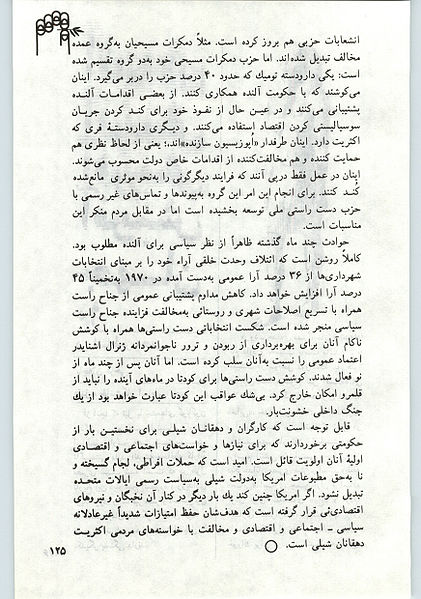 انشعابات حزبی هم بروز کرده است. مثلاً دمکرات مسیحیان به‌گروه عمده
مخالف تبدیل شده‌اند. اما حزب دمکرات مسیحی خود به‌دو گروه تقسیم شده
است: یکی دارودسته تومیك که حدود ۴۰ درصد حزب را دربر می‌گیرد. اینان
می‌کوشند که با حکومت آلنده همکاری کنند. از بعضی اقدامات آلنده
پشتیبانی می‌کنند و در عین حال از نفوذ خود برای کند کردن جریان
سوسیالیستی کردن اقتصاد استفاده می‌کنند. و دیگری دارودستهٔ فری که
اکثریت دارد. اینان طرفدار «اُپوزیسیون سازنده»اند،؛ یعنی از لحاظ نظری هم
حمایت کننده و هم مخالفت‌کننده از اقدامات خاص دولت محسوب می‌شوند.
اینان در عمل فقط در‌پی آنند که فرایند دیگرگونی را به‌نحو موثری مانع‌شده
کُند کنند. برای انجام این امر این گروه به‌پیوندها و تماس‌های غیر رسمی با
حزب دست راستی ملی توسعه بخشیده است اما در مقابل مردم منکر این
مناسبات است.
حوادث چند ماه گذشته ظاهراً از نظر سیاسی برای آلنده مطلوب بود.
کاملاً روشن است که ائتلاف وحدت خلقی آراء خود را بر مبنای انتخابات
شهرداری‌ها از ۳۶ درصد آرا عمومی به‌دست آمده در ۱۹۷۰ به‌تخمیناً ۴۵
درصد آرا افزایش خواهد داد. کاهش مداوم پشتیبانی عمومی از جناح راست
همراه با تسریع اصلاحات شهری و روستائی به‌مخالفت فزاینده جناح راست
سیاسی منجر شده است. شکست انتخاباتی دست راستی‌ها همراه با کوشش
ناکام آنان برای بهره‌برداری از ربودن و ترور ناجوانمردانه ژنرال اشنایدر
اعتماد عمومی را نسبت به‌آنان سلب کرده است. اما آنان پس از چند ماه از
نو فعال شدند. کوشش دست راستی‌ها برای کودتا در ماه‌های آینده را نباید از
قلمرو امکان خارج کرد. بی‌شك عواقب این کودتا عبارت خواهد بود از یك
جنگ داخلی خشونت‌بار.
قابل توجه است که کارگران و دهقانان شیلی برای نخستین بار از
حکومتی برخوردارند که برای نیازها و خواست‌های اجتماعی و اقتصادی
اولیهٔ آنان اولویت قائل است. امید است که حملات افراطی، لجام گسیخته و
نا به‌حق مطبوعات امریکا به‌دولت شیلی به‌سیاست رسمی ایالات متحده
تبدیل نشود. اگر امریکا چنین کند یك بار دیگر در کنار آن نخبگان و نیروهای
اقتصادی‌ئی قرار گرفته است که هدف‌شان حفظ امتیازات شدیداً غیرعادلانه
سیاسی ـ اجتماعی و اقتصادی و مخالفت با خواسته‌های مردمی اکثریت
دهقانان شیلی است.
۱۲۵